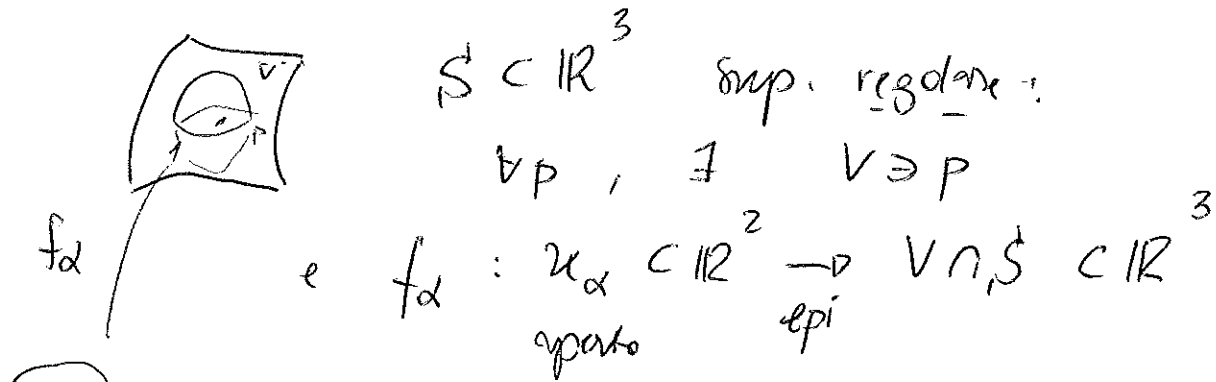 S ⊂ ℝ³ sup. regolare :
∀p , ∃ V ∋ p
f_α e f_α : U_α ⊂ ℝ² → V ∩ S ⊂ ℝ³
aperto epi
V
p